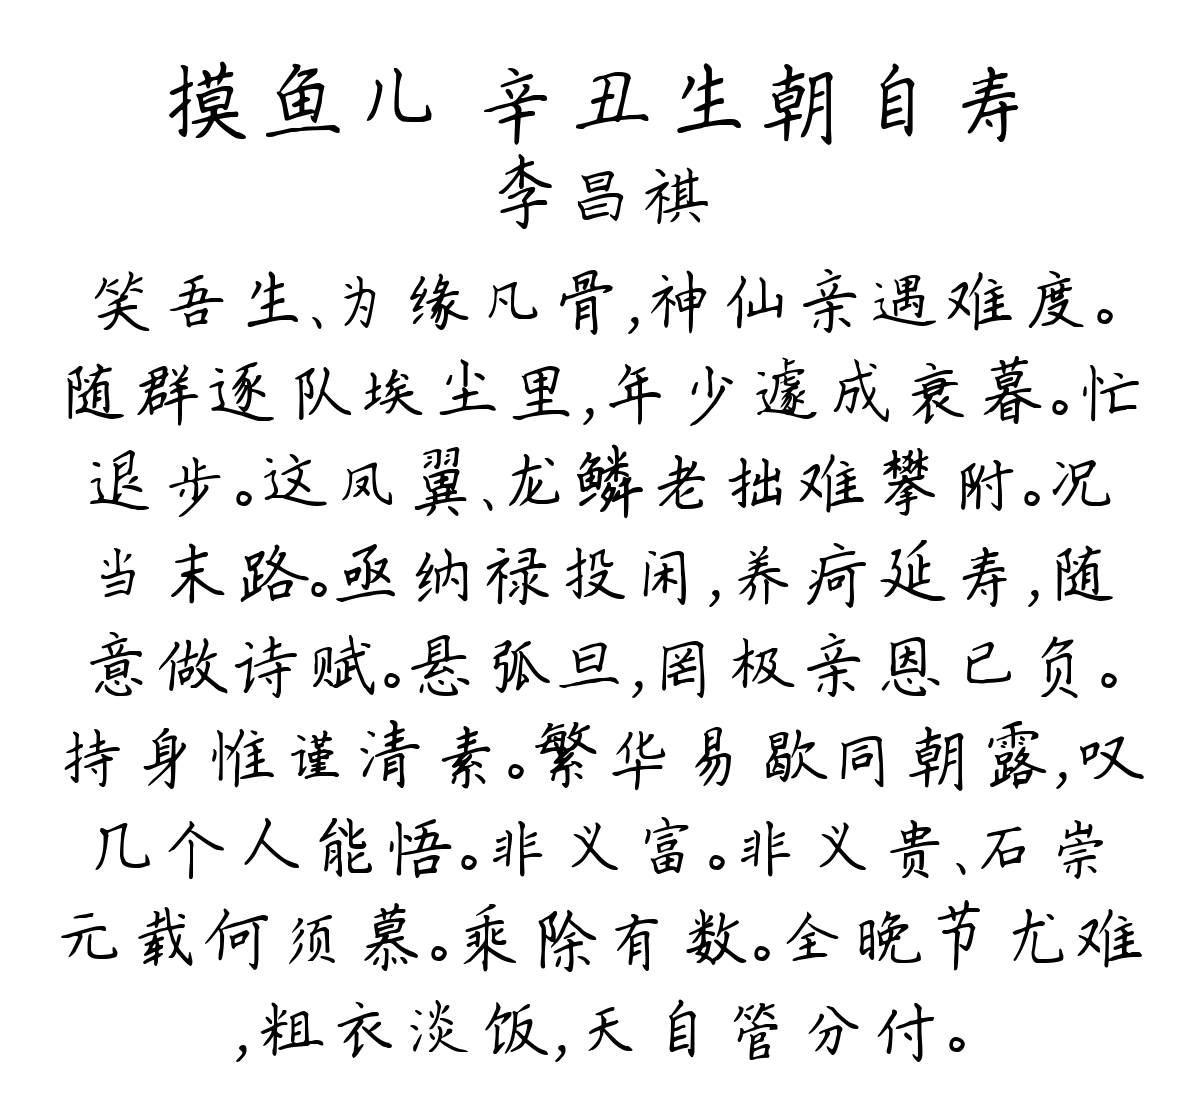 摸鱼儿 辛丑生朝自寿
李昌祺
笑吾生、为缘凡骨,神仙亲遇难度。
随群逐队埃尘里,年少遽成衰暮。忙
退步。这凤翼、龙鳞老拙难攀附。况
当末路。亟纳禄投闲,养疴延寿,随
意做诗赋。悬弧旦,罔极亲恩已负。
持身惟谨清素。繁华易歇同朝露,叹
几个人能悟。非义富。非义贵、石崇
元载何须慕。乘除有数。全晚节尤难
,粗衣淡饭,天自管分付。